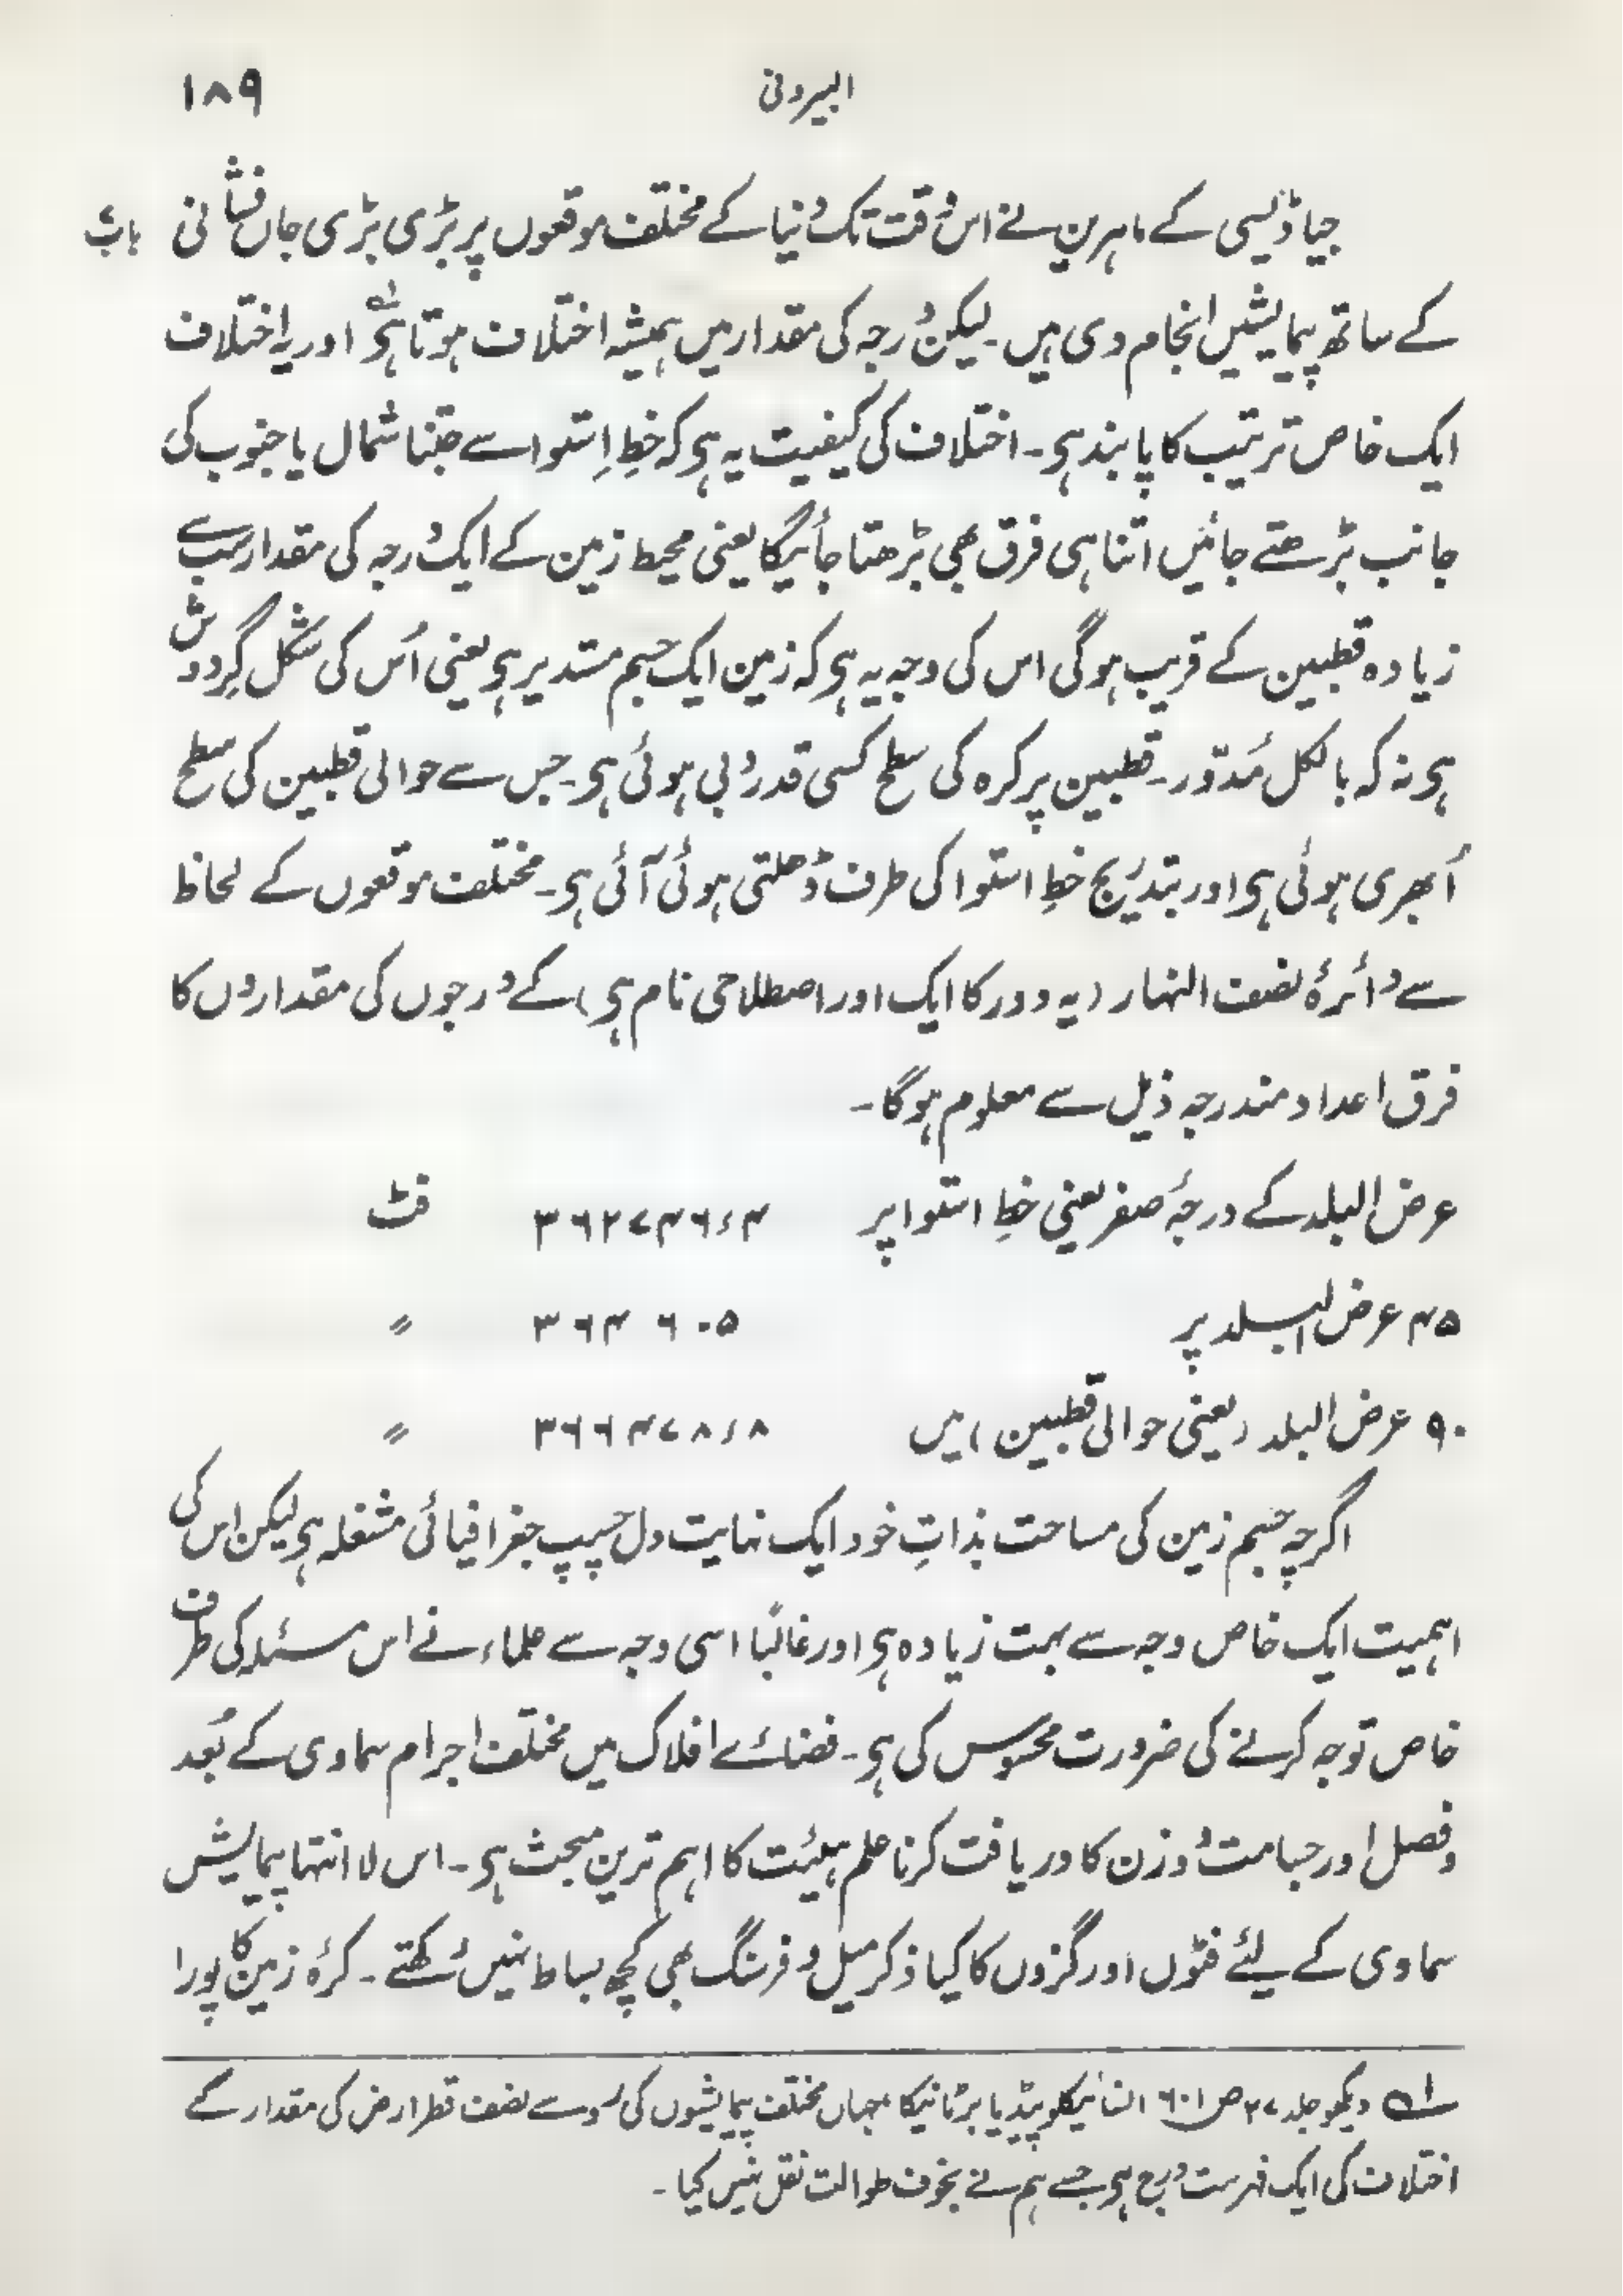 البیرونی ۱۸۹
جیاڈیسی کے ماہرین نے اس وقت تک دنیا کے مختلف موقعوں پر بڑی بڑی جاں فشانی
کے ساتھ پیمایشیں انجام دی ہیں۔ لیکن درجہ کی مقدار میں ہمیشہ اختلاف ہوتا ہی اور یہ اختلاف
ایک خاص ترتیب کا پابند ہی۔ اختلاف کی کیفیت یہ ہی کہ خطِ اِستوا سے جتنا شمال یا جنوب کی
جانب بڑھتے جائیں اتنا ہی فرق بھی بڑھتا جائیگا یعنی محیط زمین کے ایک درجہ کی مقدار سب سے
زیادہ قطبین کے قریب ہوگی اس کی وجہ یہ ہی کہ زمین ایک جسم مستدیر ہی یعنی اُس کی شکل گِرد وش
ہی نہ کہ بالکل مُدوّر۔ قطبین پر کرہ کی سطح کسی قدر دبی ہوئی ہی۔ جس سے حوالی قطبین کی سطح
اُبھری ہوئی ہی اور بتدریج خطِ استوا کی طرف ڈھلتی ہوئی آئی ہی۔ مختلف موقعوں کے لحاظ
سے دائرۂ نصف النہار (یہ دور کا ایک اور اصطلاحی نام ہی) کے درجوں کی مقداروں کا
فرق اعداد مندرجہ ذیل سے معلوم ہوگا۔
عرض البلد کے درجۂ صفر یعنی خطِ استوا پر ۳۶۲۷۴۶٫۴ فٹ
۴۵ عرض البلد پر ۳۶۴۶۰۵ ״
۹۰ عرض البلد (یعنی حوالی قطبین) میں ۳۶۶۴۷۸٫۸ ״
اگرچہ جسم زمین کی مساحت بذاتِ خود ایک نہایت دل چسپ جغرافیائی مشغلہ ہی لیکن اس کی
اہمیت ایک خاص وجہ سے بہت زیادہ ہی اور غالبًا اسی وجہ سے علماء نے اس مسئلہ کی طرف
خاص توجہ کرنے کی ضرورت محسوس کی ہی۔ فضائے افلاک میں مختلف اجرام سماوی کے بُعد
و فصل اور جسامت و وزن کا دریافت کرنا علم ہیئت کا اہم ترین مبحث ہی۔ اس لا انتہا پیمایش
سماوی کے لیئے فٹوں اور گزوں کا کیا ذکر میل و فرسنگ بھی کچھ بساط نہیں رکھتے۔ کرۂ زمین کا پورا
۱؎ دیکھو جلد ۲۷ ص ۶۰۱ انسائیکلوپیڈیا برٹانیکا جہاں مختلف پیمایشوں کی رو سے نصف قطر ارض کی مقدار کے
اختلاف کی ایک فہرست درج ہی جسے ہم نے بخوف طوالت نقل نہیں کیا۔